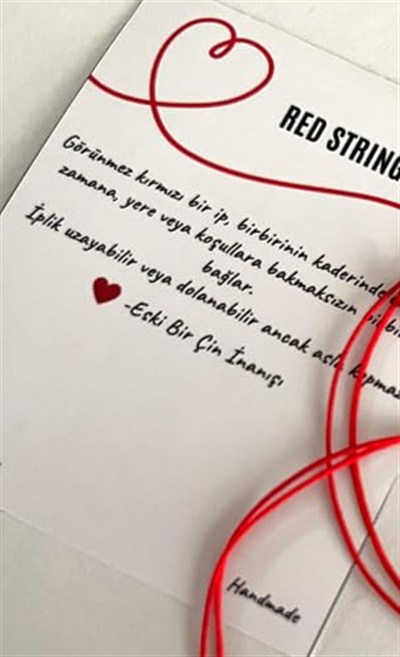 RED STRING
Görünmez kırmızı bir ip, birbirinin kaderinde
zamana, yere veya koşullara bakmaksızın
bağlar.
İplik uzayabilir veya dolanabilir ancak asla kopmaz
-Eski Bir Çin İnanışı
Handmade